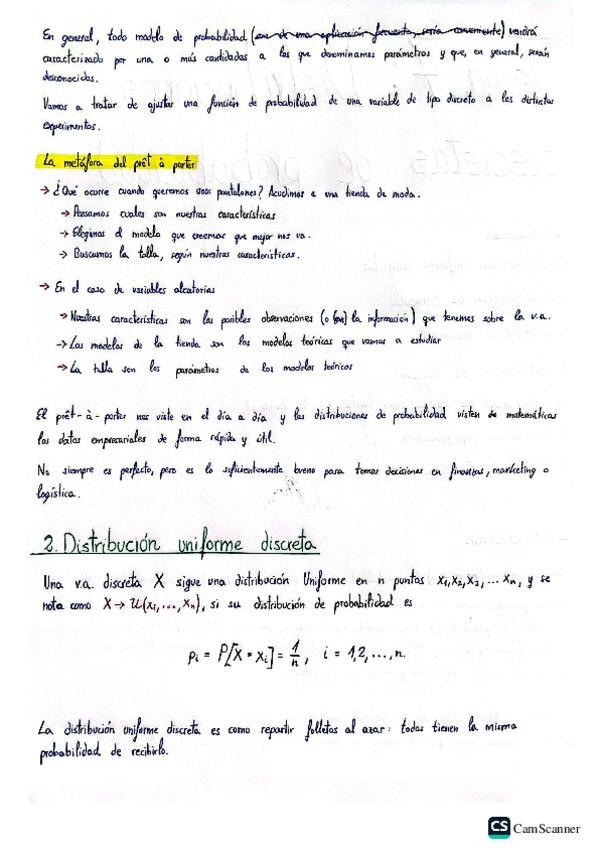 En general, todo modelo de probabilidad (que de una aplicación frecuente, sería conveniente) vendrá
caracterizado por una o más cantidades a las que denominamos parámetros y que, en general, serán
desconocidos.
Vamos a tratar de ajustar una función de probabilidad de una variable de tipo discreto a los distintos
experimentos.
La metáfora del prêt à porter
→ ¿Qué ocurre cuando queremos unos pantalones? Acudimos a una tienda de moda.
→ Pensamos cuales son nuestras características
→ Elegimos el modelo que creemos que mejor nos va.
→ Buscamos la talla, según nuestras características.
→ En el caso de variables aleatorias
→ Nuestras características son las posibles observaciones (o la información) que tenemos sobre la v.a.
→ Los modelos de la tienda son los modelos teóricos que vamos a estudiar
→ La talla son los parámetros de los modelos teóricos
El prêt-à-porter nos viste en el día a día y las distribuciones de probabilidad visten de matemáticas
los datos empresariales de forma rápida y útil.
No siempre es perfecto, pero es lo suficientemente bueno para tomar decisiones en finanzas, marketing o
logística.
2. Distribución uniforme discreta
Una v.a. discreta X sigue una distribución Uniforme en n puntos x₁, x₂, x₃, ... xₙ, y se
nota como X → U(x₁, ..., xₙ), si su distribución de probabilidad es
pᵢ = P[X = xᵢ] = 1/n, i = 1,2, ..., n.
La distribución uniforme discreta es como repartir folletos al azar: todos tienen la misma
probabilidad de recibirlo.
CS CamScanner